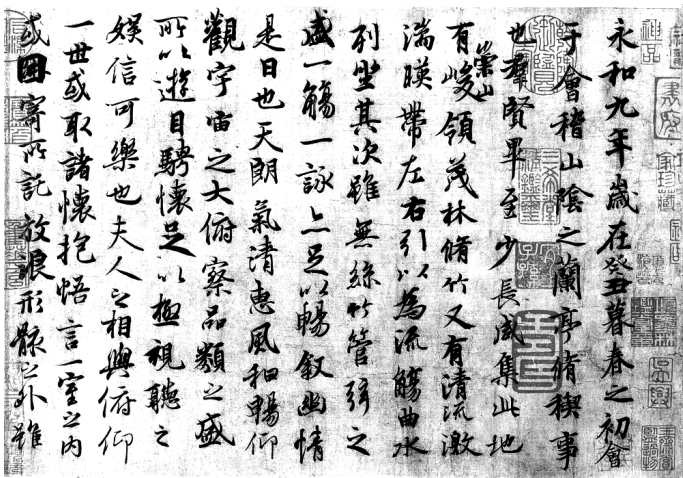 神品
永和九年歲在癸丑暮春之初會
于會稽山陰之蘭亭脩稧事
也羣賢畢至少長咸集此地
有崇山峻領茂林脩竹又有清流激
湍暎帶左右引以為流觴曲水
列坐其次雖無絲竹管弦之
盛一觴一詠亦足以暢敘幽情
是日也天朗氣清惠風和暢仰
觀宇宙之大俯察品類之盛
所以遊目騁懷足以極視聽之
娛信可樂也夫人之相與俯仰
一世或取諸懷抱悟言一室之內
或因寄所託放浪形骸之外雖